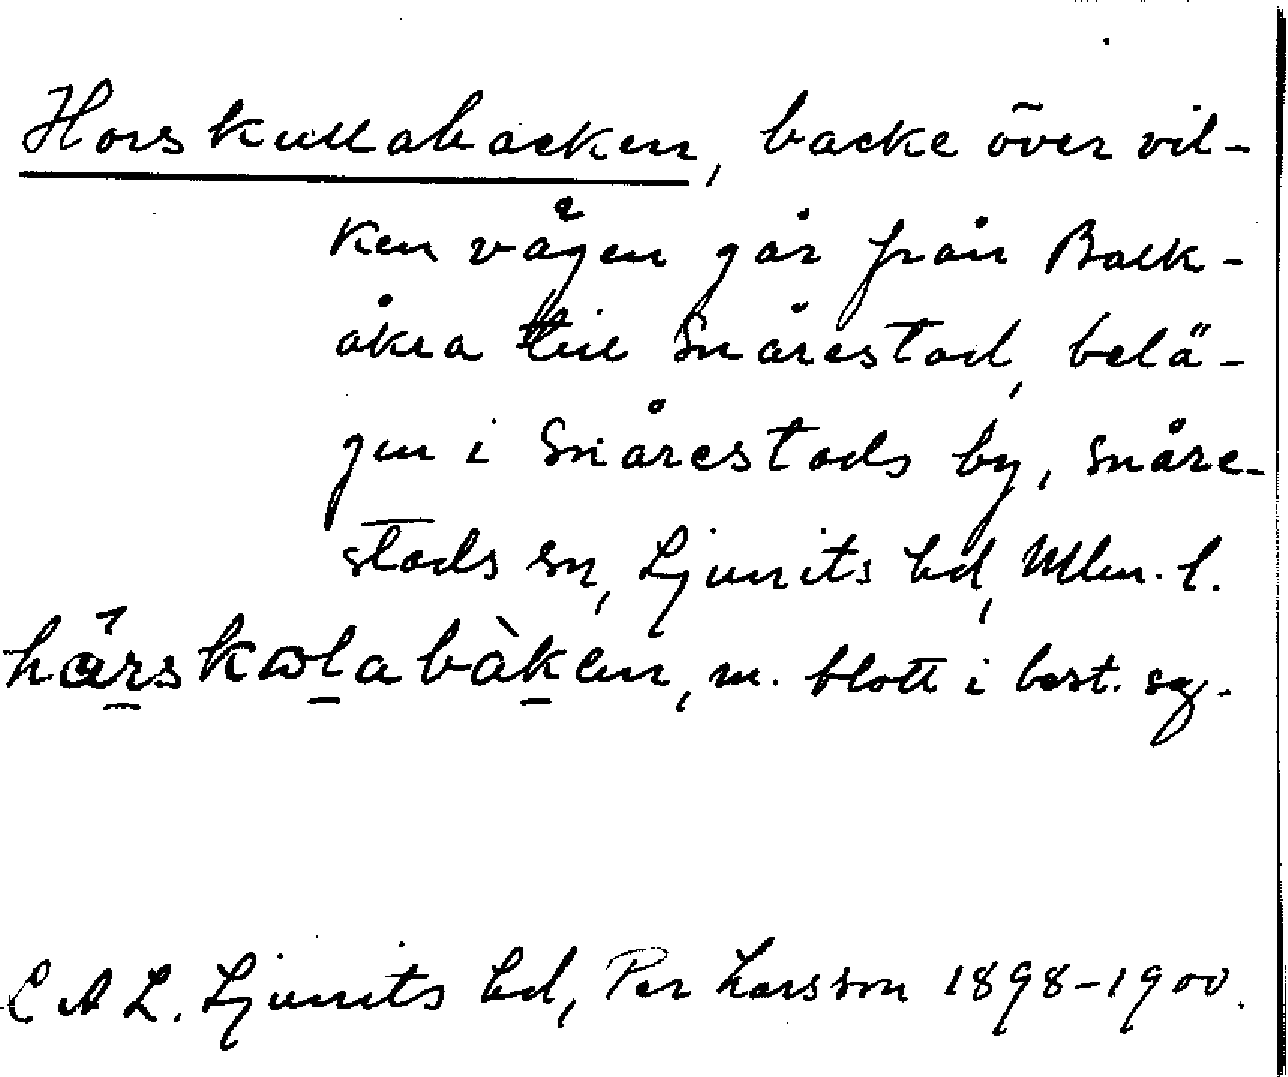 Horskullabacken, backe över vil-
ken vägen går från Balk-
åkra till Snårestad, belä-
gen i Snårestads by, Snåre-
stads sn, Ljunits hd, Mlm. l.
hårskωlabàken, m. blott i best. sg.
C A L. Ljunits hd, Per Larsson 1898-1900.